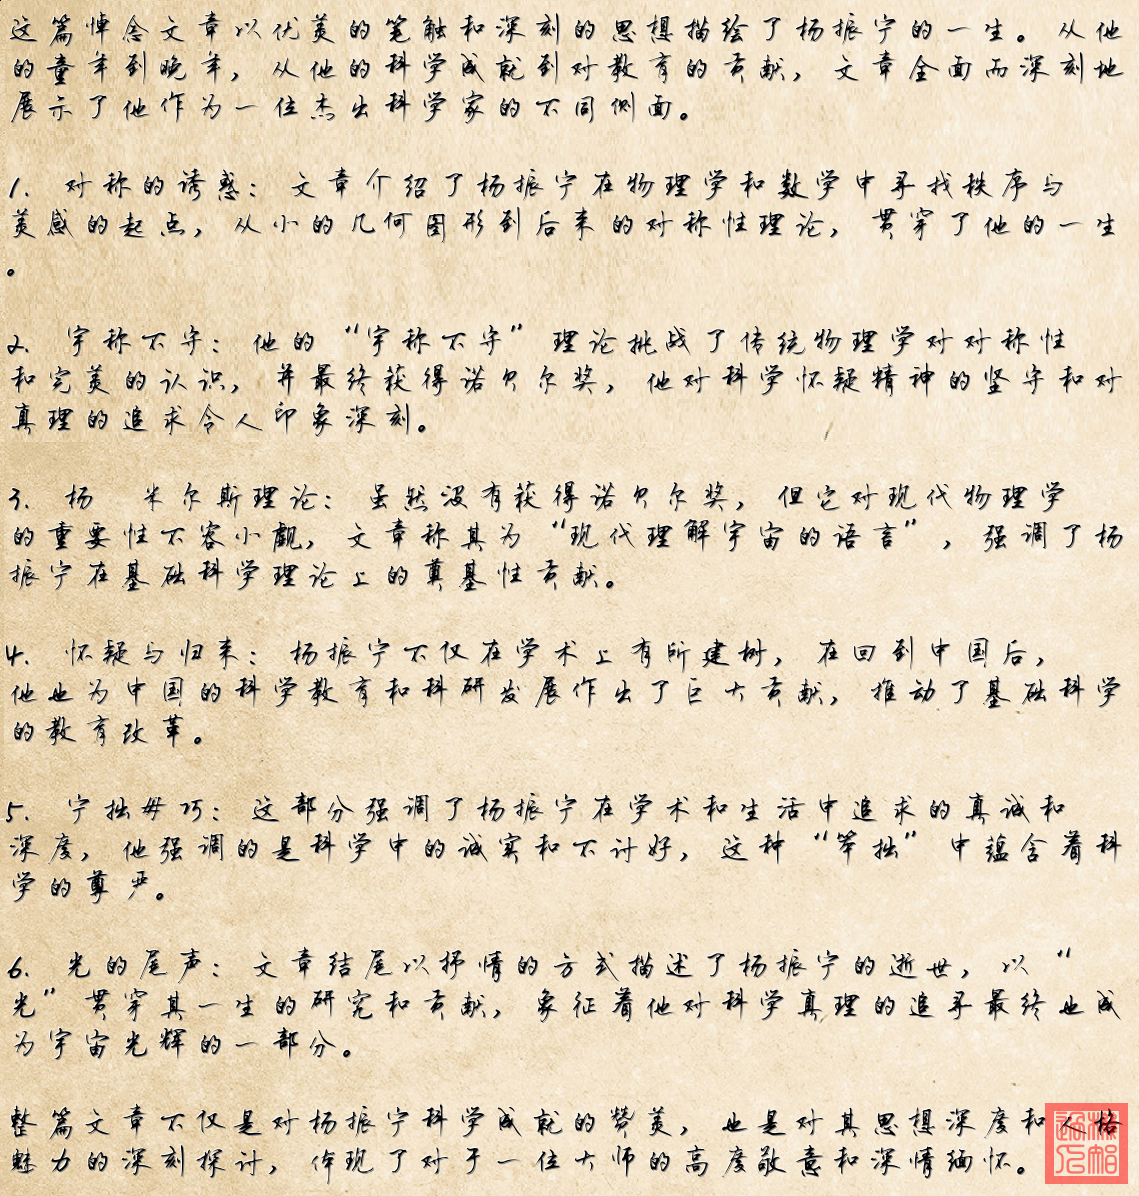 这篇悼念文章以优美的笔触和深刻的思想描绘了杨振宁的一生。从他
的童年到晚年，从他的科学成就到对教育的贡献，文章全面而深刻地
展示了他作为一位杰出科学家的不同侧面。
1. 对称的诱惑：文章介绍了杨振宁在物理学和数学中寻找秩序与
美感的起点，从小的几何图形到后来的对称性理论，贯穿了他的一生
。
2. 宇称不守：他的“宇称不守”理论挑战了传统物理学对对称性
和完美的认识，并最终获得诺贝尔奖，他对科学怀疑精神的坚守和对
真理的追求令人印象深刻。
3. 杨 米尔斯理论：虽然没有获得诺贝尔奖，但它对现代物理学
的重要性不容小觑，文章称其为“现代理解宇宙的语言”，强调了杨
振宁在基础科学理论上的奠基性贡献。
4. 怀疑与归来：杨振宁不仅在学术上有所建树，在回到中国后，
他也为中国的科学教育和科研发展作出了巨大贡献，推动了基础科学
的教育改革。
5. 宁拙毋巧：这部分强调了杨振宁在学术和生活中追求的真诚和
深度，他强调的是科学中的诚实和不讨好，这种“笨拙”中蕴含着科
学的尊严。
6. 光的尾声：文章结尾以抒情的方式描述了杨振宁的逝世，以“
光”贯穿其一生的研究和贡献，象征着他对科学真理的追寻最终也成
为宇宙光辉的一部分。
整篇文章不仅是对杨振宁科学成就的赞美，也是对其思想深度和人格
魅力的深刻探讨，体现了对于一位大师的高度敬意和深情缅怀。